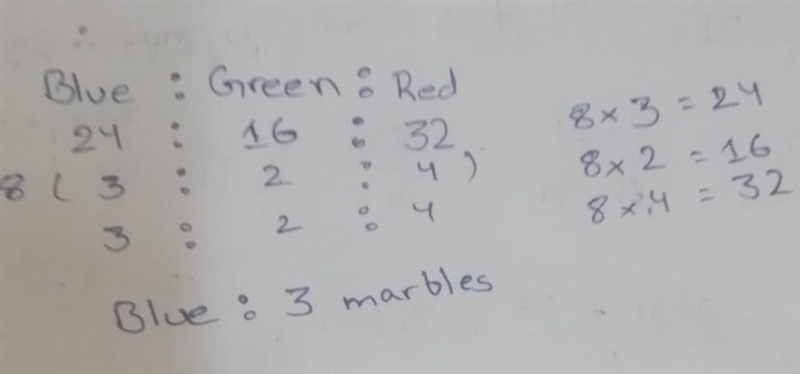 Blue : Green : Red
24 : 16 : 32
8 ( 3 : 2 : 4 )
3 : 2 : 4
Blue : 3 marbles
8 × 3 = 24
8 × 2 = 16
8 × 4 = 32